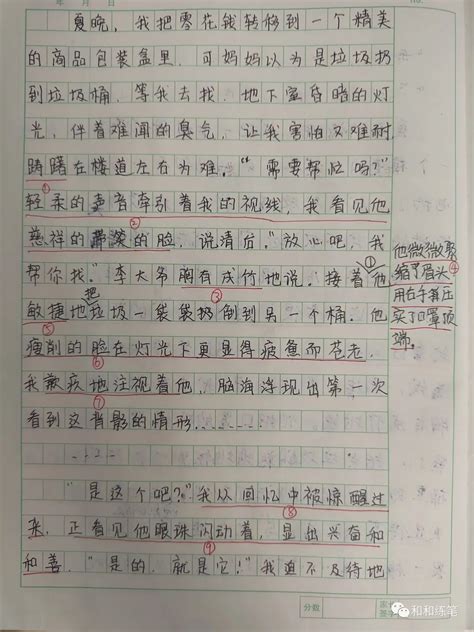 年 月 日
夏晚，我把零花钱转移到一个精美
的商品包装盒里，可妈妈以为是垃圾扔
到垃圾桶，等我去找，地下室昏暗的灯
光，伴着难闻的臭气，让我害怕又难耐，
踌躇在楼道左右为难。“需要帮忙吗？”
①
轻柔的声音牵引着我的视线，我看见他
②
慈祥的带笑的脸，说清后，“放心吧，我
帮你找。”李大爷胸有成竹地说，接着①他
③
敏捷地把垃圾一袋袋扔倒到另一个桶。他
⑤
瘦削的脸在灯光下更显得疲惫而苍老，
⑥
我歉疚地注视着他，脑海浮现出第一次
⑦
看到这背影的情形……
……
“是这个吧？”我从回忆中被惊醒过
⑧
来，正看见他眼珠闪动着，显出兴奋和
⑨
和善，“是的，就是它！”我迫不及待地
他微微聚
缩了眉头④
用右手算压
实了口罩顶
端。
分数
和和练笔